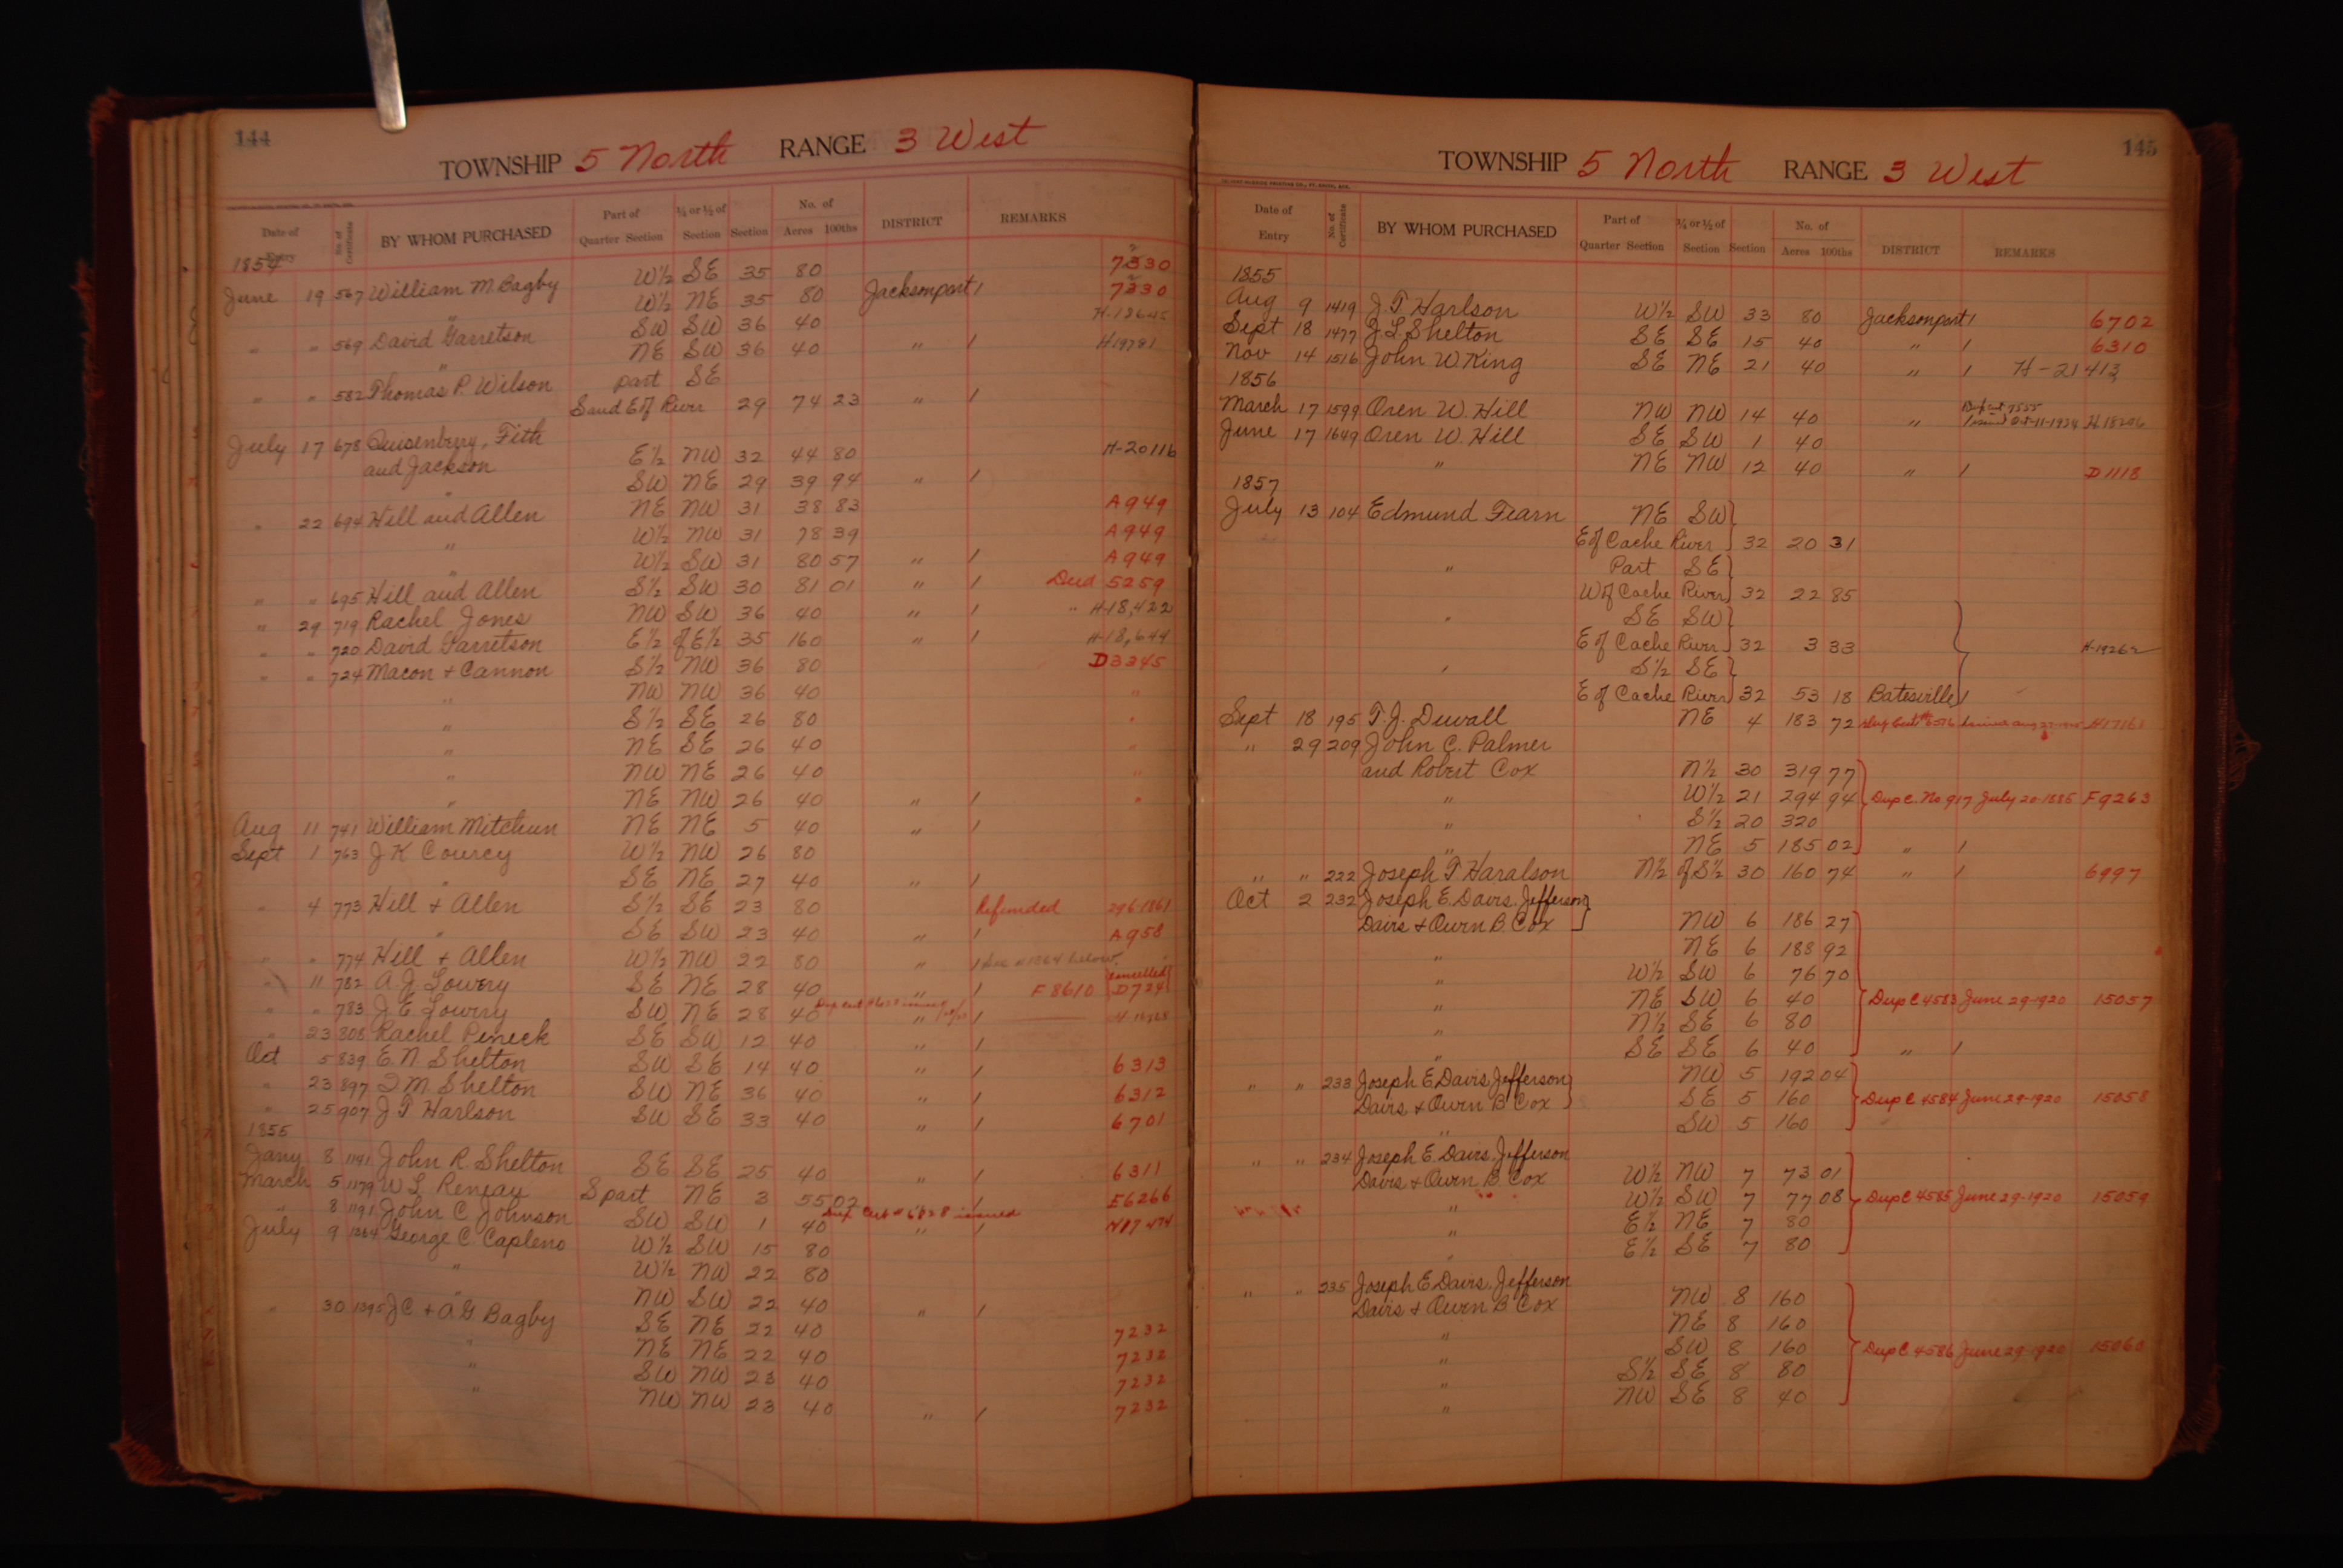 144
TOWNSHIP 5 North RANGE 3 West
Date of Entry No. of Certificate BY WHOM PURCHASED Part of Quarter Section ¼ or ½ of Section Section No. of Acres 100ths DISTRICT REMARKS
1854
W½ SE 35 80 7330
June 19 567 William M. Bagby W½ NE 35 80 Jacksonport / 7330
" SW SW 36 40
" " 569 David Garretson NE SW 36 40 " / H19781
" part SE
" " 582 Thomas P. Wilson S and E of River 29 74 23 " /
July 17 678 Quisenberry, Fith
and Jackson E½ NW 32 44 80 H-20116
" SW NE 29 39 94 " /
" 22 694 Hill and Allen NE NW 31 38 83 A949
" W½ NW 31 78 39 A949
" W½ SW 31 80 57 " / A949
" " 695 Hill and Allen S½ SW 30 81 01 " / Dud 5259
" 29 719 Rachel Jones NW SW 36 40 " / " H-18,422
" " 720 David Garretson E½ of E½ 35 160 " / H-18,644
" " 724 Macon + Cannon S½ NW 36 80 D3345
" NW NW 36 40 "
" S½ SE 26 80 "
" NE SE 26 40 "
" NW NE 26 40 "
" NE NW 26 40 " / "
Aug 11 741 William Mitchun NE NE 5 40 " /
Sept 1 763 J K Courcy W½ NW 26 80
" SE NE 27 40 " /
" 4 773 Hill + Allen S½ SE 23 80 Refunded 296-1861
" SE SW 23 40 " / A958
" " 774 Hill + Allen W½ NW 22 80 " / See #1264 below
" 11 782 A. J. Lowery SE NE 28 40 " / F8610 Cancelled D724
" " 783 J. E. Lowery SW NE 28 40 " /
" 23 808 Rachel Peneck SE SW 12 40 " /
Oct 5 839 E. N Shelton SW SE 14 40 " / 6313
" 23 897 I. M. Shelton SW NE 36 40 " / 6312
" 25 907 J T Harlson SW SE 33 40 " / 6701
1855
Jany 8 1141 John R. Shelton SE SE 25 40 " / 6311
March 5 1179 W L Renfay S part NE 3 55 02 / E6266
" 8 1191 John C Johnson SW SW 1 40 Dup Cert # 6828 issued " /
July 9 1264 George C. Capleno W½ SW 15 80
" W½ NW 22 80
" NW SW 22 40 " /
" 30 1395 J C + A G Bagby SE NE 22 40 7232
" NE NE 22 40 7232
" SW NW 23 40 7232
" NW NW 23 40 " / 7232
145
TOWNSHIP 5 North RANGE 3 West
Date of Entry No. of Certificate BY WHOM PURCHASED Part of Quarter Section ¼ or ½ of Section Section No. of Acres 100ths DISTRICT REMARKS
1855
Aug 9 1419 J. T Harlson W½ SW 33 80 Jacksonport / 6702
Sept 18 1477 J. L Shelton SE SE 15 40 " / 6310
Nov 14 1516 John W. King SE NE 21 40 " / H-21413
1856
March 17 1599 Oren W. Hill NW NW 14 40 " H 18296
June 17 1649 Oren W. Hill SE SW 1 40
" NE NW 12 40 " / D1118
1857
July 13 104 Edmund Fearn NE SW
E of Cache River 32 20 31
" Part SE
W of Cache River 32 22 85
" SE SW
E of Cache River 32 3 33 H-19262
" S½ SE
E of Cache River 32 53 18 Batesville /
Sept 18 195 T. J. Duvall NE 4 183 72 H17161
" 29 209 John C. Palmer
and Robert Cox N½ 30 319 77
" W½ 21 294 94 Dup C. No 917 July 20-1885 F9263
" S½ 20 320
" NE 5 185 02 " /
" " 222 Joseph T. Haralson N½ of S½ 30 160 74 " / 6997
Oct 2 232 Joseph E. Davis, Jefferson
Davis + Owen B. Cox NW 6 186 27
" NE 6 188 92
" W½ SW 6 76 70
" NE SW 6 40 Dup C 4583 June 29-1920 15057
" N½ SE 6 80
" SE SE 6 40 " /
" " 233 Joseph E. Davis, Jefferson NW 5 192 04
Davis + Owen B Cox SE 5 160 Dup C 4584 June 29-1920 15058
" SW 5 160
" " 234 Joseph E. Davis, Jefferson
Davis + Owen B. Cox W½ NW 7 73 01
" W½ SW 7 77 08 Dup C 4585 June 29-1920 15059
" E½ NE 7 80
" E½ SE 7 80
" " 235 Joseph E. Davis, Jefferson
Davis + Owen B Cox NW 8 160
" NE 8 160
" SW 8 160 Dup C 4586 June 29-1920 15060
" S½ SE 8 80
" NW SE 8 40